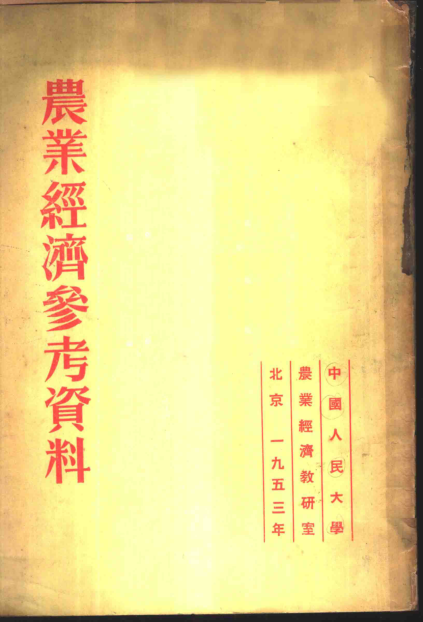 農業經濟參考資料
中國人民大學
農業經濟教研室
北京 一九五三年